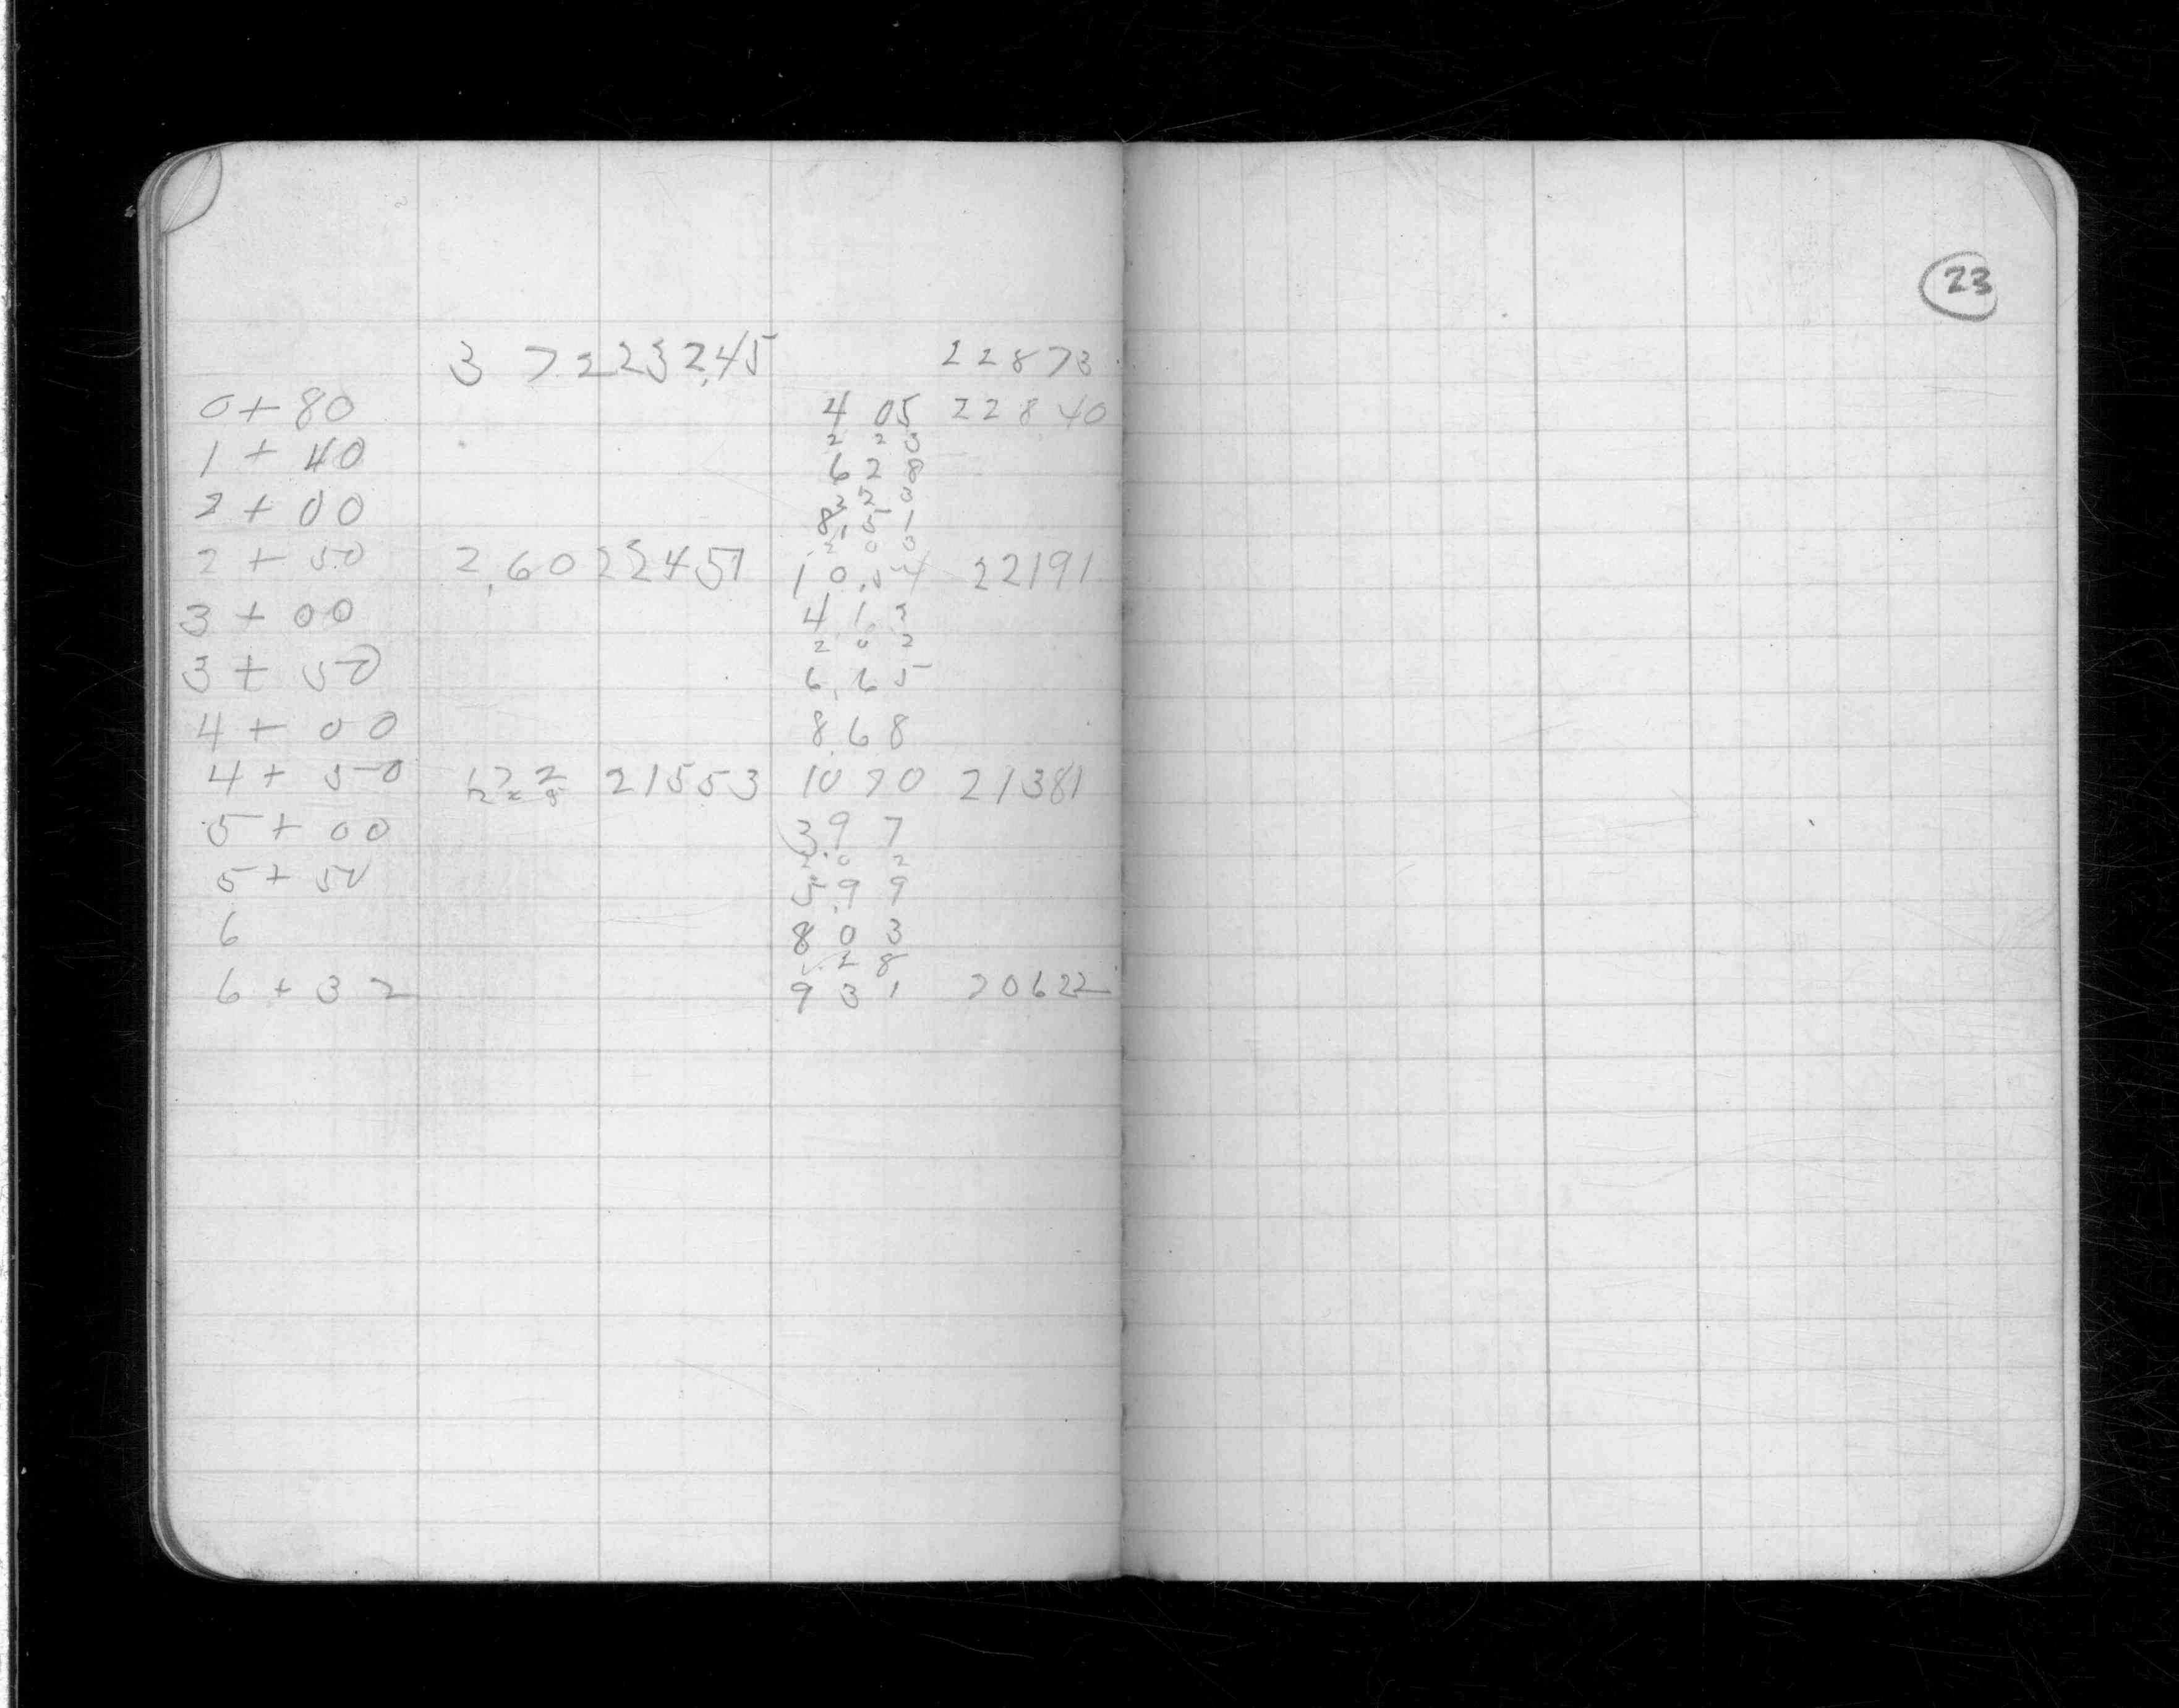 3 72 232.45 22873
0+80 4 05 22840
1 + 40 2 2 3
6 2 8
2 + 00 2 2 3
8 5 1
2 0 3
2 + 50 2.60 22451 10.54 22191
3 + 00 4 1. 3
2 0 2
3 + 50 6.65
4 + 00 8.68
4 + 50 21553 10 70 21381
5 + 00 3.9 7
2 0 2
5 + 50 5.9 9
6 8 0 3
1. 2 8
6 + 32 9 3 1 20622
23